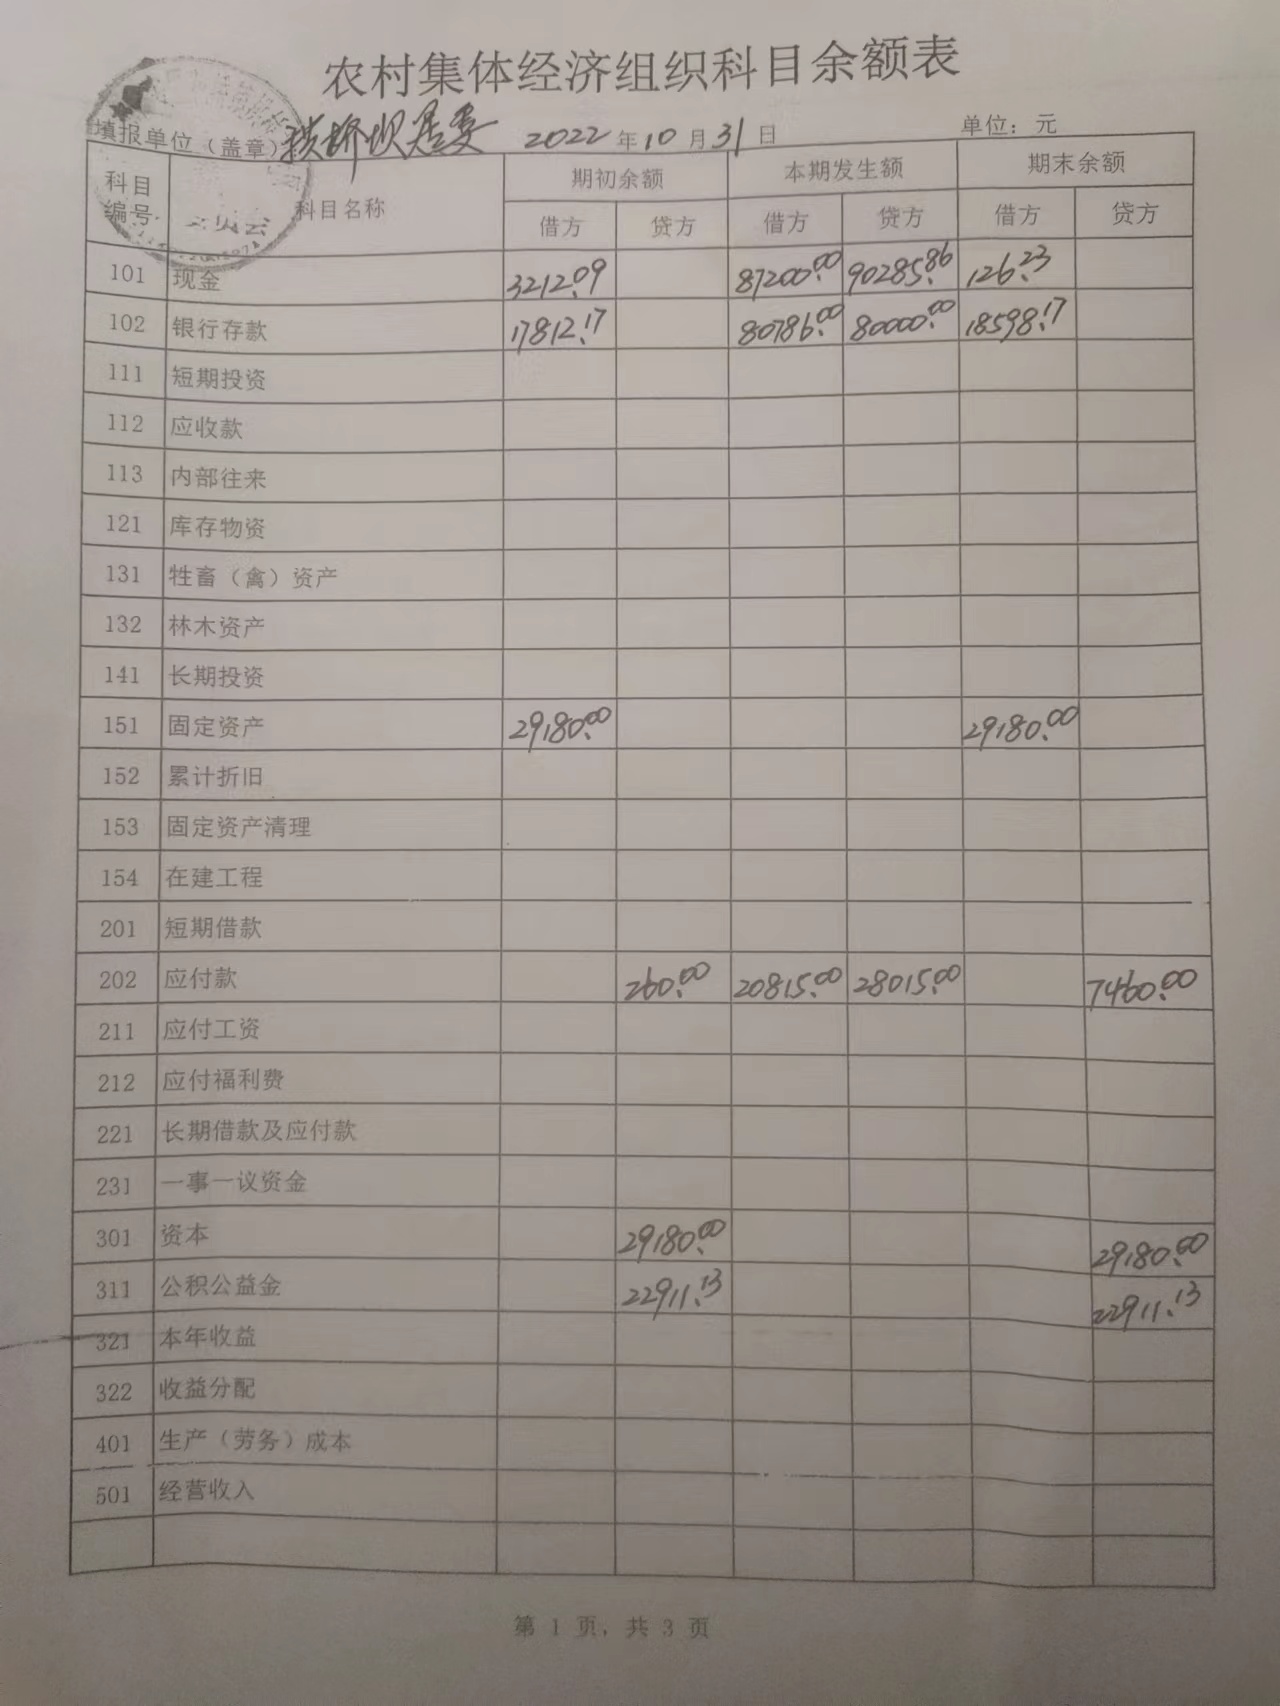 农村集体经济组织科目余额表
填报单位（盖章） 桥坝居委 2022年10月31日 单位：元
科目编号 科目名称 期初余额 本期发生额 期末余额
借方 贷方 借方 贷方 借方 贷方
101 现金 3212.09 87200.00 90285.86 126.23
102 银行存款 17812.17 80786.00 80000.00 18598.17
111 短期投资
112 应收款
113 内部往来
121 库存物资
131 牲畜（禽）资产
132 林木资产
141 长期投资
151 固定资产 29180.00 29180.00
152 累计折旧
153 固定资产清理
154 在建工程
201 短期借款
202 应付款 260.00 20815.00 28015.00 7460.00
211 应付工资
212 应付福利费
221 长期借款及应付款
231 一事一议资金
301 资本 29180.00 29180.00
311 公积公益金 22911.13 22911.13
321 本年收益
322 收益分配
401 生产（劳务）成本
501 经营收入
第 1 页，共 3 页